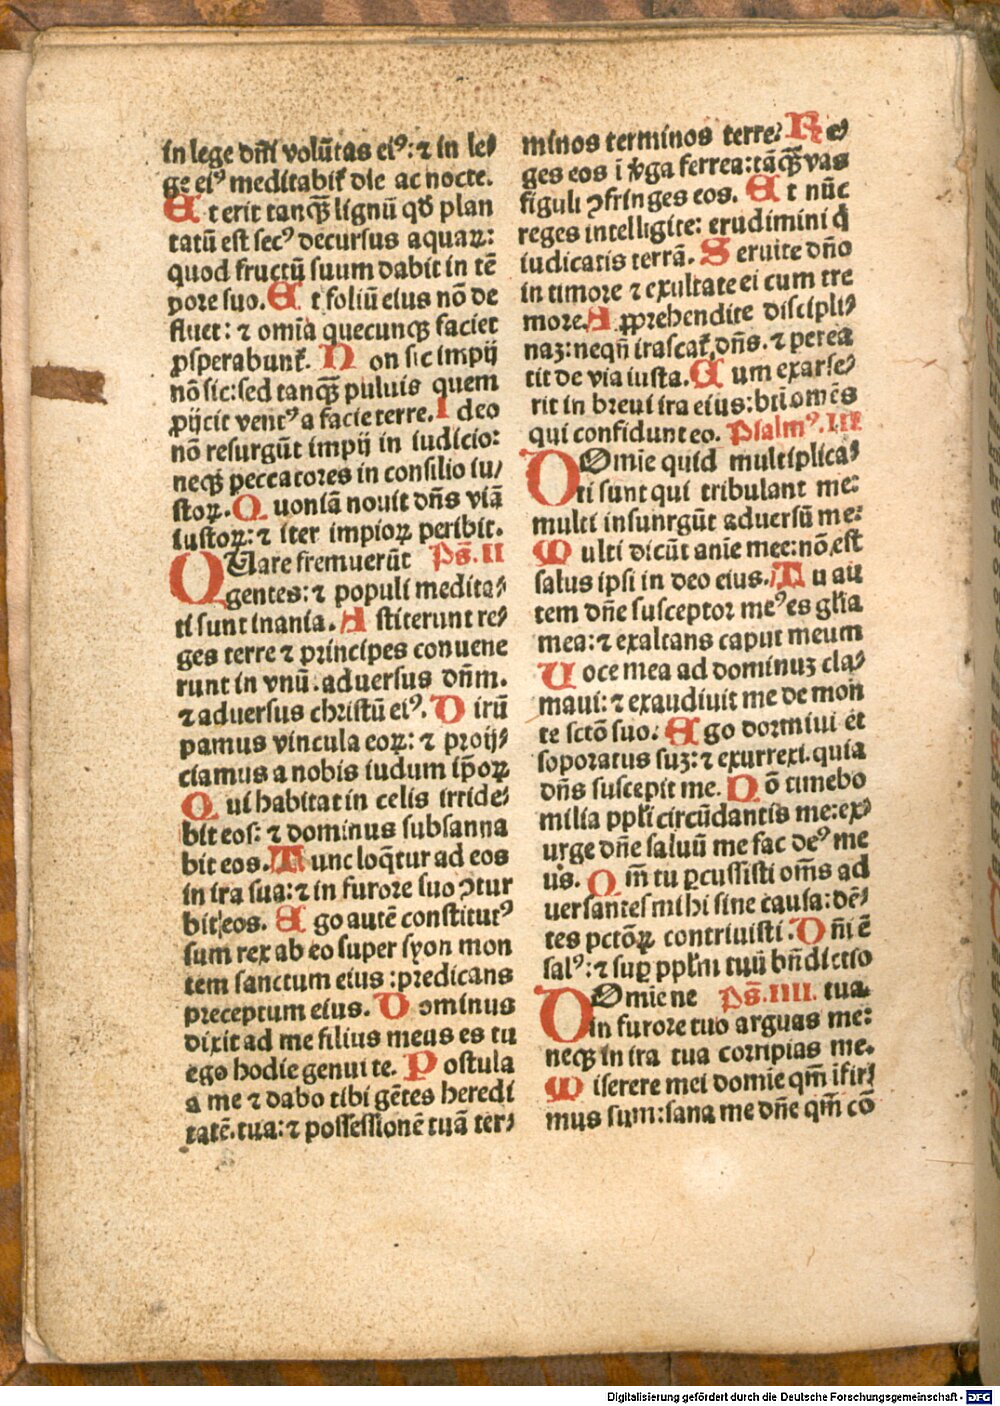 in lege dn̄i volūtas eiꝰ: ⁊ in le⸗
ge eiꝰ meditabit̉ die ac nocte.
Et erit tanqȝ̄ lignū qd̄ plan
tatū est secꝰ decursus aquaꝝ:
quod fructū suum dabit in tē
pore suo. Et foliū eius nō de
fluet: ⁊ omīa quecunqȝ faciet
ꝓsperabunt̉. Non sic impij
nō sic: sed tanqȝ̄ puluis quem
ꝓijcit ventꝰ a facie terre. Ideo
nō resurgūt impij in iudicio:
neqȝ peccatores in consilio iu⸗
stoꝝ. Quoniā nouit dn̄s viā
iustoꝝ: ⁊ iter impioꝝ peribit.
QUare fremuerūt Ps̄. II
gentes: ⁊ populi medita⸗
ti sunt inania. Astiterunt re⸗
ges terre ⁊ principes conuene
runt in vnū. aduersus dn̄m.
⁊ aduersus christū eiꝰ. Dirū
pamus vincula eoꝝ: ⁊ proij⸗
ciamus a nobis iudum ip̄oꝝ
Qui habitat in celis irride⸗
bit eos: ⁊ dominus subsanna
bit eos. Tunc loq̄tur ad eos
in ira sua: ⁊ in furore suo ꝯtur
bit eos. Ego autē constitutꝰ
sum rex ab eo super syon mon
tem sanctum eius: predicans
preceptum eius. Dominus
dixit ad me filius meus es tu
ego hodie genui te. Postula
a me ⁊ dabo tibi gētes heredi
tatē. tua: ⁊ possessionē tuā ter⸗
minos terminos terre. Re⸗
ges eos ī v̓ga ferrea: tāqȝ̄ vas
figuli ꝯfringes eos. Et nūc
reges intelligite: erudimini q̇
iudicatis terrā. Seruite dn̄o
in timore ⁊ exultate ei cum tre
more. Apprehendite discipli⸗
naȝ: neqn̄ irascat̉ dn̄s. ⁊ perea
tit de via iusta. Cum exarse⸗
rit in breui ira eius: bt̄i omēs
qui confidunt eo. Psalmꝰ. III
DOmīe quid multiplica⸗
ti sunt qui tribulant me:
multi insunrgūt aduersū me:
Multi dicūt anīe mee: nō est
salus ipsi in deo eius. Tu au
tem dn̄e susceptor meꝰ es gl̄ia
mea: ⁊ exaltans caput meum
Uoce mea ad dominuȝ cla⸗
maui: ⁊ exaudiuit me de mon
te sctō suo. Ego dormiui et
soporatus suȝ: ⁊ exurrexi. quia
dn̄s suscepit me. Nō timebo
milia ppl̄i circūdantis me: ex⸗
urge dn̄e saluū me fac deꝰ me
us. Qm̄ tu ꝑcussisti om̄s ad
uersantes mihi sine causa: dē⸗
tes pctōꝝ contriuisti. Dn̄i ē
salꝰ: ⁊ suꝑ ppl̄m tuū bn̄dictio
DOmīe ne Ps̄. IIII. tua.
in furore tuo arguas me:
neqȝ in ira tua corripias me.
Miserere mei domīe qm̄ ifir⸗
mus sum: sana me dn̄e qm̄ cō
Digitalisierung gefördert durch die Deutsche Forschungsgemeinschaft - DFG